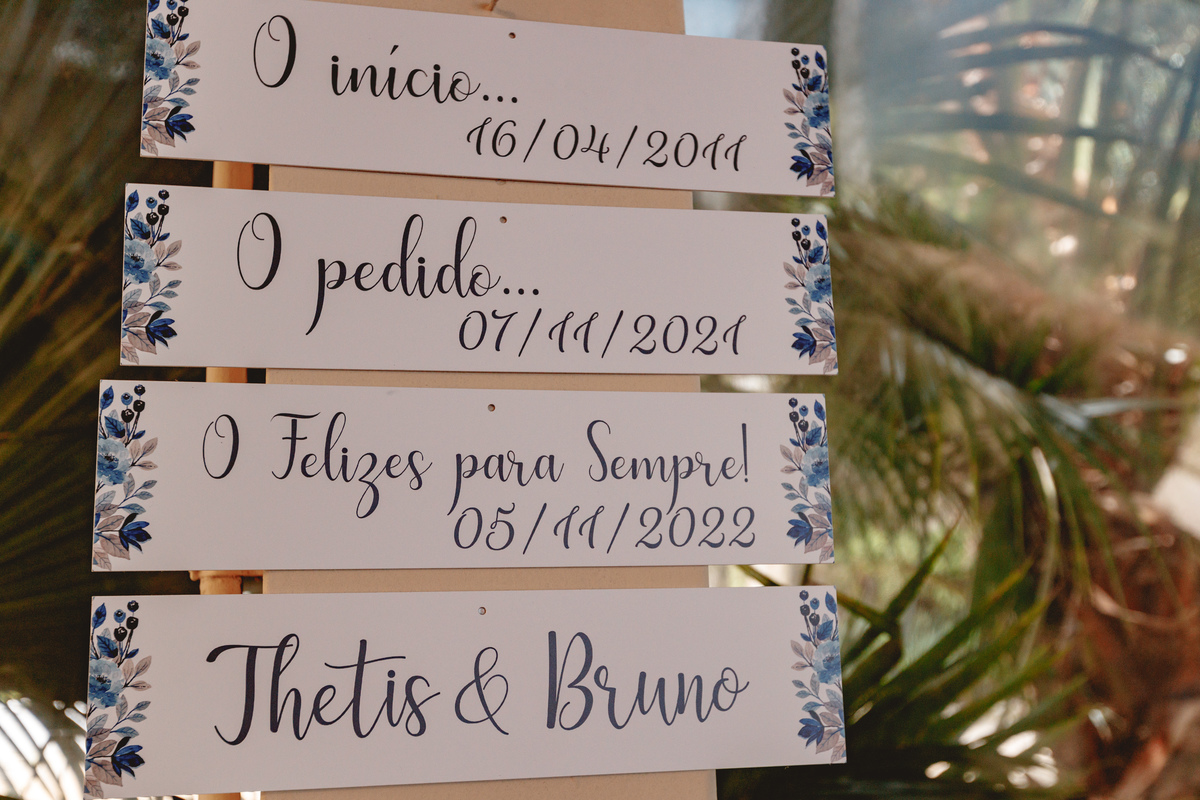 O início...
16/04/2011
O pedido...
07/11/2021
O Felizes para Sempre!
05/11/2022
Thetis & Bruno